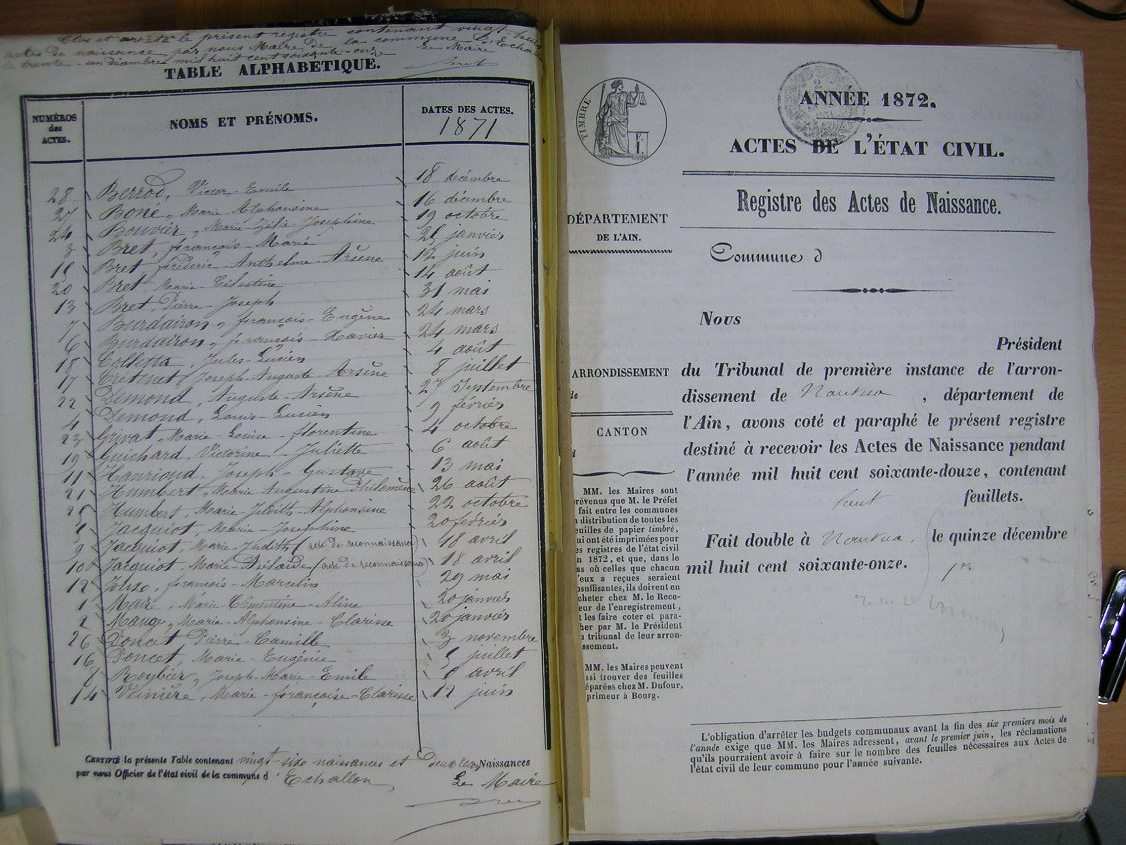 Clos et arrêté le présent registre contenant vingt huit
actes de naissance par nous Maire de la commune d'Echallon
le trente-un décembre mil huit cent soixante-onze
Le Maire
TABLE ALPHABÉTIQUE.
NUMÉROS des ACTES. NOMS ET PRÉNOMS. DATES DES ACTES.
1871
28 Berrod, Victor-Emile 18 décembre
27 Bone, Marie Alphonsine 16 décembre
24 Bouvier, Marie-Zélie Joséphine 19 octobre
3 Bret, François-Marie 21 janvier
Bret Anthelme-Arsène 12 juin
20 Bret Marie-Célestine 14 août
13 Bret Pierre-Joseph 31 mai
7 Burdairon, François-Eugène 24 mars
6 Burdairon, François-Xavier 24 mars
18 Jules-Lucien 4 août
17 Joseph-Auguste-Arsène 8 juillet
22 Dimond, Auguste-Arsène 27 Septembre
4 Dimond, Louis-Lucien 9 février
23 Marie-Louise-florentine 4 octobre
19 Guichard Victorine-Juliette 6 août
11 Joseph-Gustave 13 mai
21 Humbert, Marie Augustine Philomène 26 août
25 Humbert, Marie Judith-Alphonsine 22 octobre
Jacquiot, Marie Joséphine 20 février
9 Jacquiot, Marie-Judith (acte de reconnaissance) 18 avril
10 Jacquiot, Marie-Adélaïde (acte de reconnaissance) 18 avril
12 François-Marcelin 29 mai
1 Marie Clémentine-Aline 20 janvier
2 Marie-Alphonsine-Clarisse 20 janvier
26 Poncet, Pierre-Camille 3 novembre
16 Poncet, Marie-Eugénie 5 juillet
Joseph-Marie-Emile 8 avril
14 Marie-françoise-Clarisse 12 juin
CERTIFIÉ la présente Table contenant vingt-six naissances et deux Naissances
par nous Officier de l'état civil de la commune d'Echallon,
Le Maire
TIMBRE
ANNÉE 1872.
ACTES DE L'ÉTAT CIVIL.
Registre des Actes de Naissance.
DÉPARTEMENT
DE L'AIN.
Commune d
Nous
Président
ARRONDISSEMENT
CANTON
du Tribunal de première instance de l'arron-
dissement de Nantua, département de
l'Ain, avons coté et paraphé le présent registre
destiné à recevoir les Actes de Naissance pendant
l'année mil huit cent soixante-douze, contenant
feuillets.
Fait double à Nantua, le quinze décembre
mil huit cent soixante-onze.
MM. les Maires sont
prévenus que M. le Préfet
fait entre les communes
distribution de toutes les
feuilles de papier timbré,
qui ont été imprimées pour
les registres de l'état civil
en 1872, et que, dans le
cas où celles que chacun
d'eux a reçues seraient
insuffisantes, ils doivent en
acheter chez M. le Rece-
veur de l'enregistrement,
et les faire coter et para-
pher par M. le Président
du tribunal de leur arron-
dissement.
MM. les Maires peuvent
aussi trouver des feuilles
préparées chez M. Dufour,
imprimeur à Bourg.
L'obligation d'arrêter les budgets communaux avant la fin des six premiers mois de
l'année exige que MM. les Maires adressent, avant le premier juin, les réclamations
qu'ils pourraient avoir à faire sur le nombre des feuilles nécessaires aux Actes de
l'état civil de leur commune pour l'année suivante.